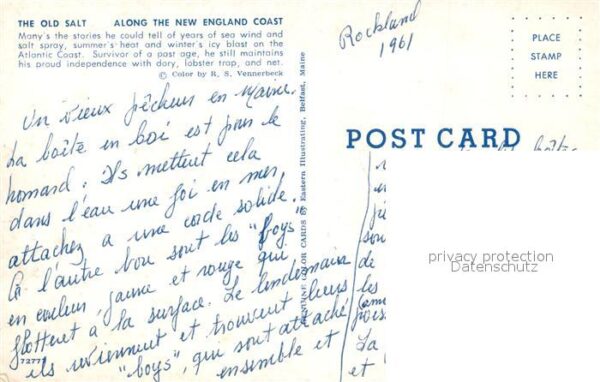 THE OLD SALT ALONG THE NEW ENGLAND COAST
Many's the stories he could tell of years of sea wind and
salt spray, summer's heat and winter's icy blast on the
Atlantic Coast. Survivor of a past age, he still maintains
his proud independence with dory, lobster trap, and net.
© Color by R. S. Vennerbeck
Un vieux pêcheur en Maine.
La boîte en boi est pour le
homard : Ils mettent cela
dans l'eau une foi en mer,
attachez a une corde solide.
A l'autre bou sont les "boys"
en couleur jaune et rouge qui
flottent à la surface. Le lendemain
ils reviennent et trouvent leurs
"boys", qui sont attaché
ensemble et
72777
GENUINE COLOR CARDS by Eastern Illustrating, Belfast, Maine
Rockland
1961
PLACE
STAMP
HERE
POST CARD
boîte
son
de
les
La
et
privacy protection
Datenschutz